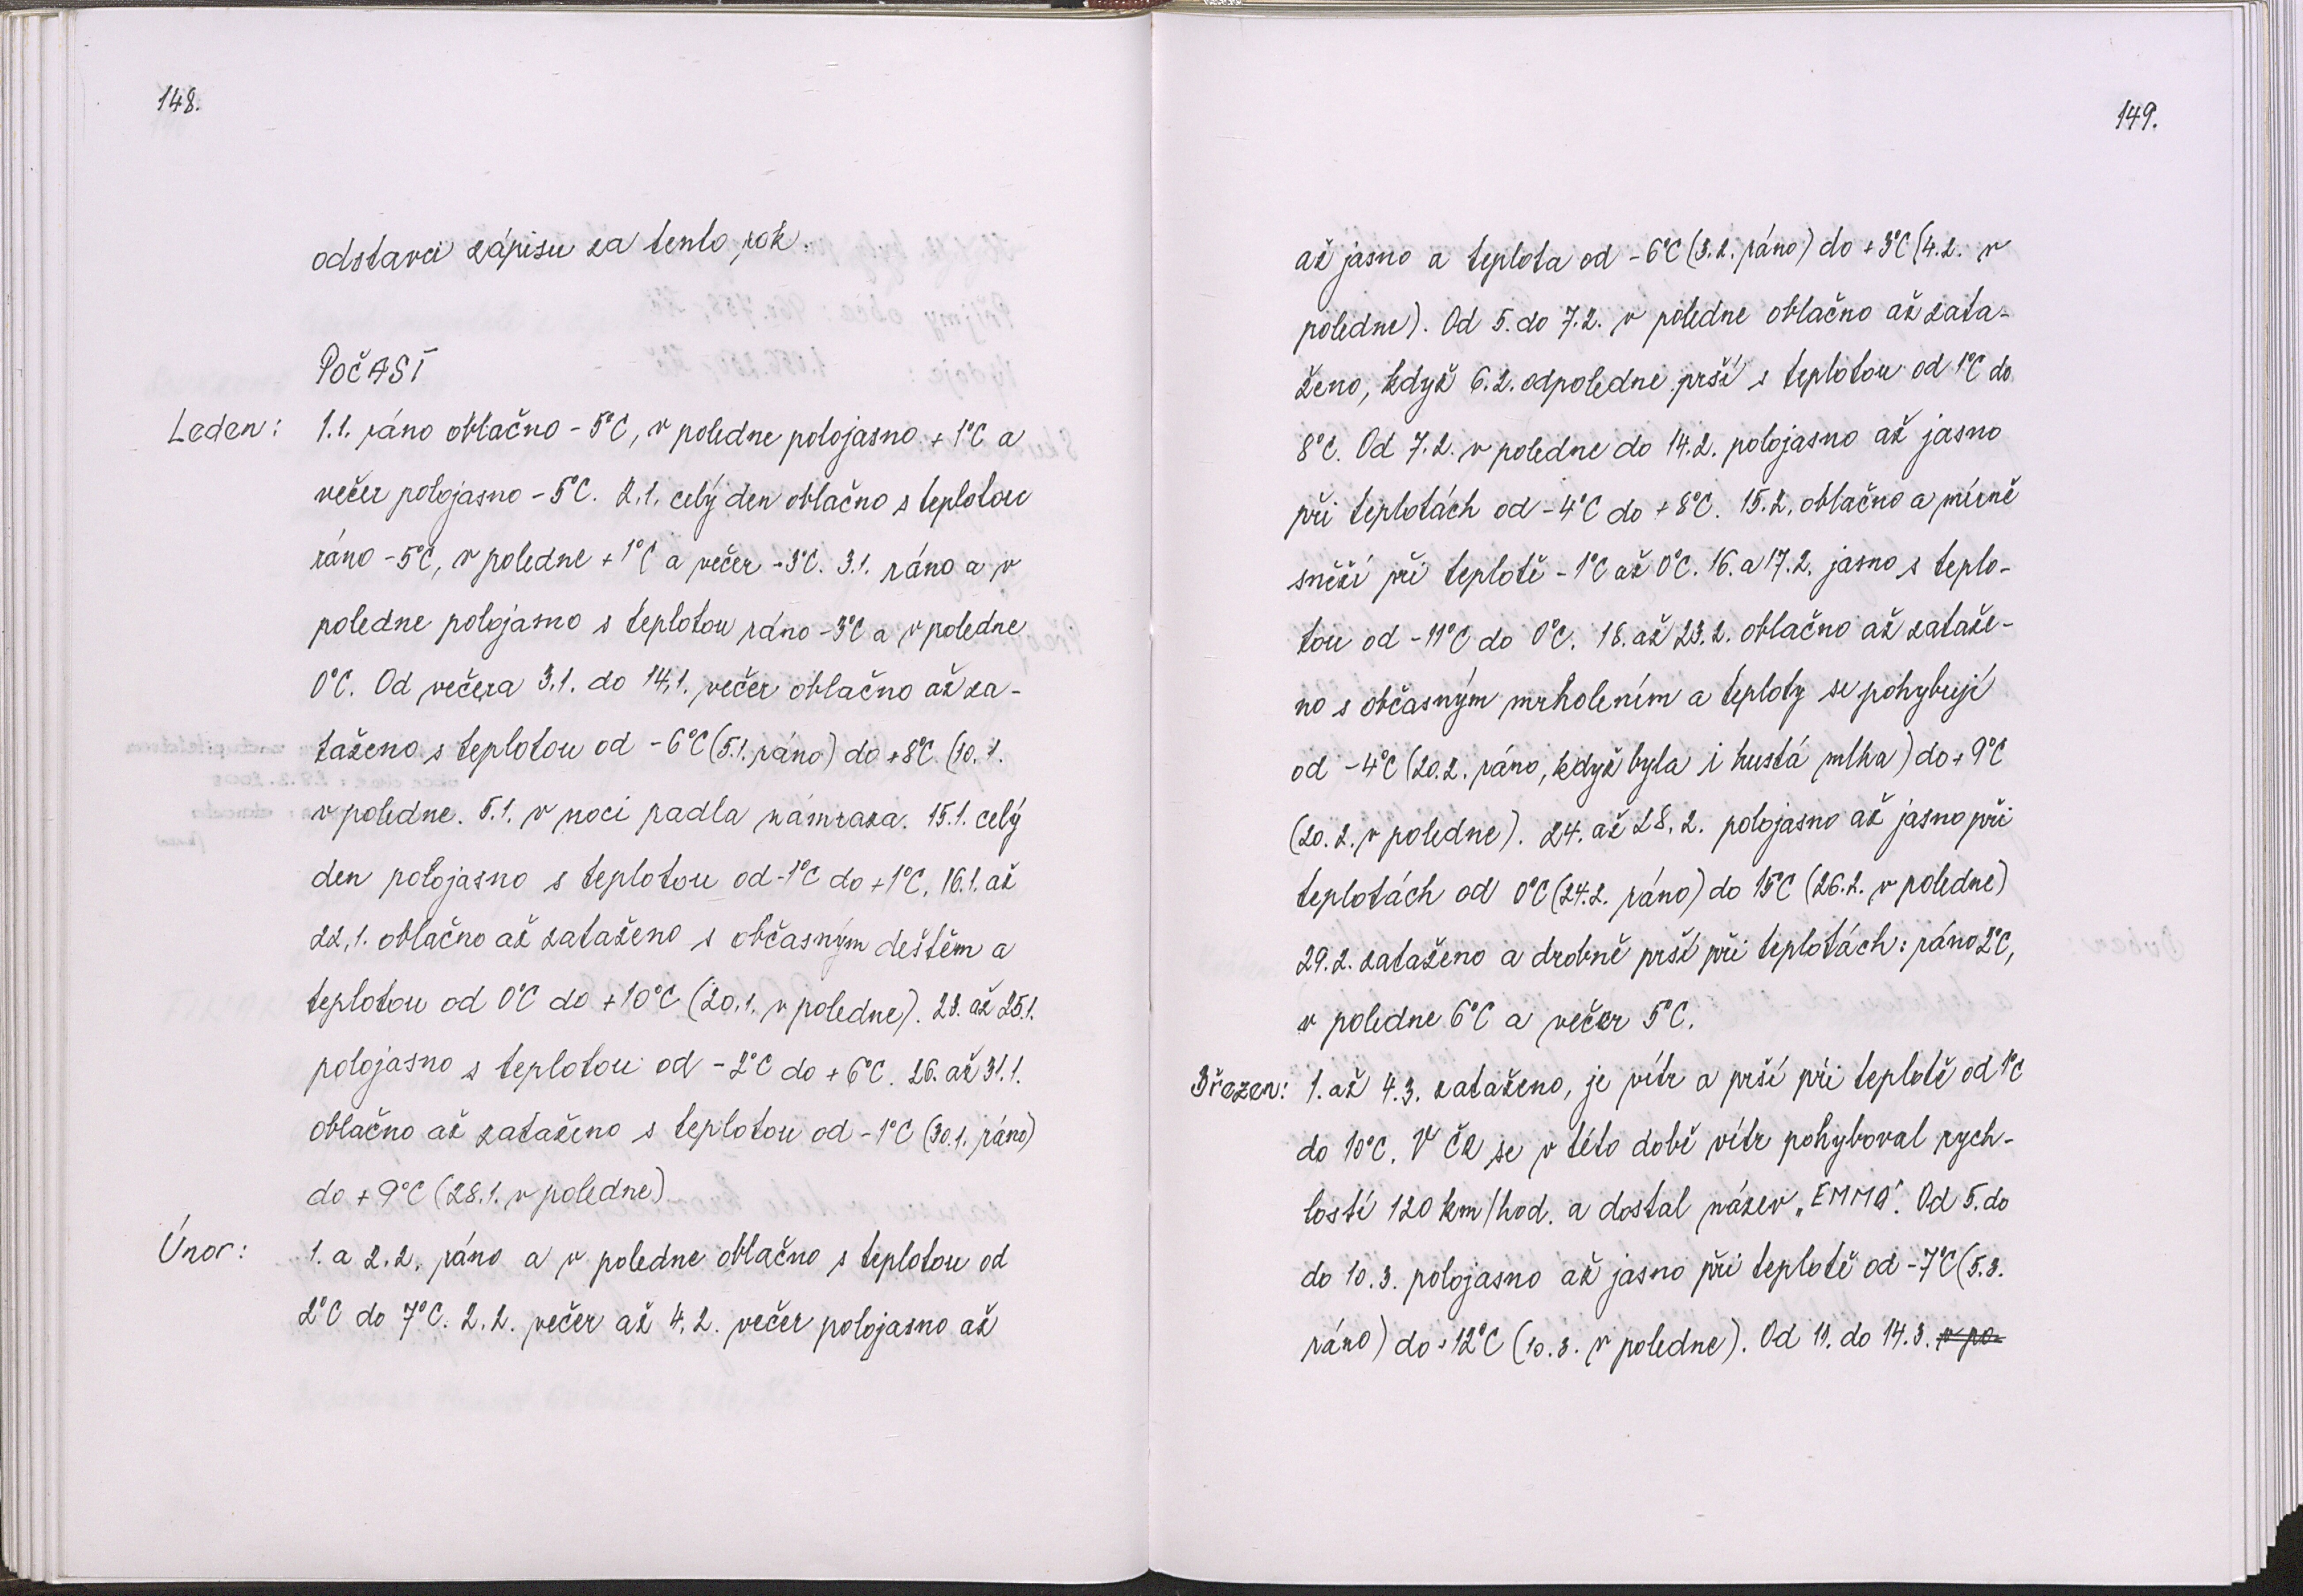 148.
odstavci zápisu za tento rok.
POČASÍ
Leden: 1.1. ráno oblačno -5°C, v poledne polojasno +1°C a
večer polojasno -5°C. 2.1. celý den oblačno s teplotou
ráno -5°C, v poledne +1°C a večer -3°C. 3.1. ráno a v
poledne polojasno s teplotou ráno -3°C a v poledne
0°C. Od večera 3.1. do 14.1. večer oblačno až za-
taženo s teplotou od -6°C (5.1. ráno) do +8°C (10.1.
v poledne. 5.1. v noci padla námraza. 15.1. celý
den polojasno s teplotou od -1°C do +1°C. 16.1. až
22.1. oblačno až zataženo s občasným deštěm a
teplotou od 0°C do +10°C (20.1. v poledne). 23. až 25.1.
polojasno s teplotou od -2°C do +6°C. 26. až 31.1.
oblačno až zataženo s teplotou od -1°C (30.1. ráno)
do +9°C (28.1. v poledne)
Únor: 1. a 2.2. ráno a v poledne oblačno s teplotou od
2°C do 7°C. 2.2. večer až 4.2. večer polojasno až
149.
až jasno a teplota od -6°C (3.2. ráno) do +3°C (4.2. v
poledne). Od 5. do 7.2. v poledne oblačno až zata-
ženo, když 6.2. odpoledne prší s teplotou od 1°C do
8°C. Od 7.2. v poledne do 14.2. polojasno až jasno
při teplotách od -4°C do +8°C. 15.2. oblačno a mírně
sněží při teplotě -1°C až 0°C. 16. a 17.2. jasno s teplo-
tou od -11°C do 0°C. 18. až 23.2. oblačno až zataže-
no s občasným mrholením a teploty se pohybují
od -4°C (20.2. ráno, když byla i hustá mlha) do +9°C
(20.2. v poledne). 24. až 28.2. polojasno až jasno při
teplotách od 0°C (24.2. ráno) do 15°C (26.2. v poledne)
29.2. zataženo a drobně prší při teplotách: ráno 2°C,
v poledne 6°C a večer 5°C.
Březen: 1. až 4.3. zataženo, je vítr a prší při teplotě od 1°C
do 10°C. V ČR se v této době vítr pohyboval rych-
lostí 120 km/hod. a dostal název „EMMA". Od 5. do
do 10.3. polojasno až jasno při teplotě od -7°C (5.3.
ráno) do +12°C (10.3. v poledne). Od 11. do 14.3. v po-